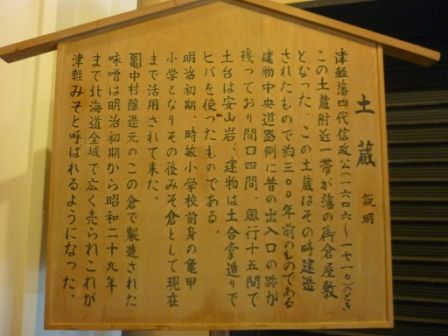 土蔵 説明
津軽藩四代信政公(一六四六~一七一〇)のとき
この土蔵附近一帯が藩の御倉屋敷
となった。この土蔵はその時建造
されたもので約三〇〇年前のものである
建物中央道路側に昔の出入口の跡が
残っており間口四間、奥行十五間で
土台は安山岩、建物は土合掌造りで
ヒバを使ったものである。
明治初期、時敏小学校前身の亀甲
小学となりその後みそ倉として現在
まで活用されて来た。
亀中村醸造元のこの倉で製造された
味噌は明治初期から昭和二十九年
まで北海道全域で広く売られこれが
津軽みそと呼ばれるようになった。